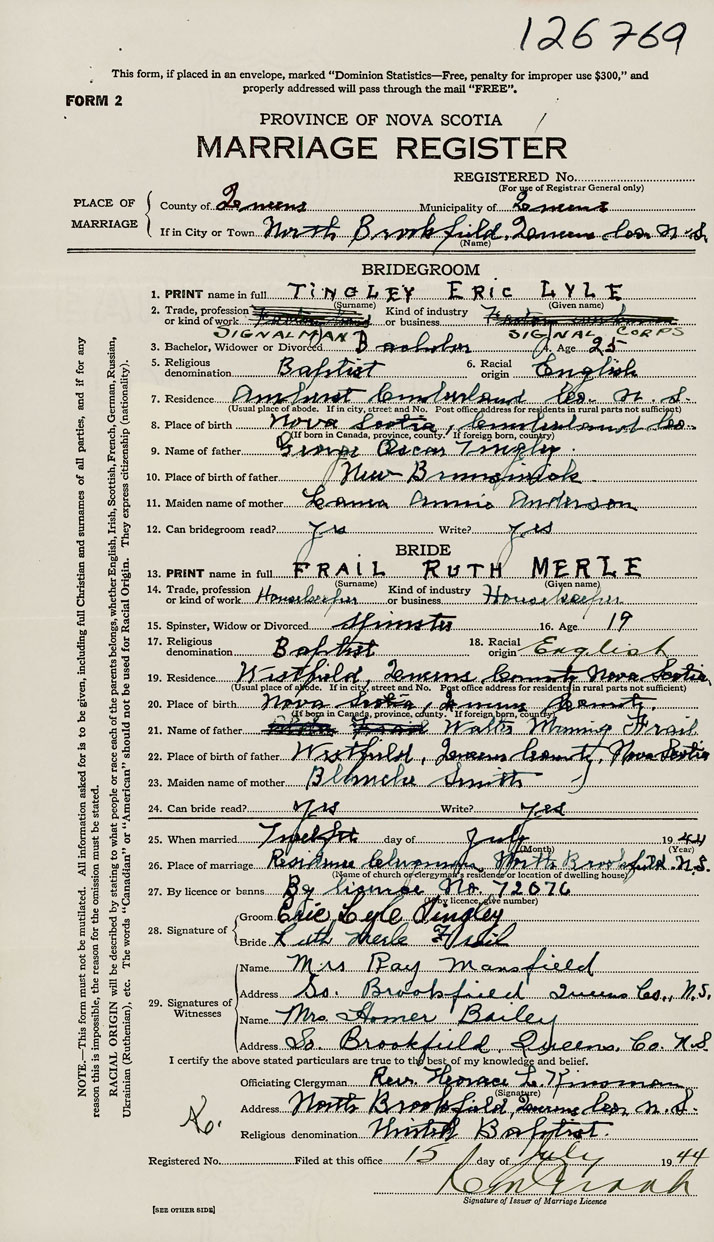 126769
This form, if placed in an envelope, marked "Dominion Statistics—Free, penalty for improper use $300," and
properly addressed will pass through the mail "FREE".
FORM 2
PROVINCE OF NOVA SCOTIA
MARRIAGE REGISTER
REGISTERED No.
(For use of Registrar General only)
PLACE OF MARRIAGE
County of Queens Municipality of Queens
If in City or Town North Brookfield, Queens Co. N.S.
(Name)
BRIDEGROOM
1. PRINT name in full TINGLEY ERIC LYLE
(Surname) (Given name)
2. Trade, profession or kind of work Kind of industry or business
SIGNALMAN SIGNAL CORPS
3. Bachelor, Widower or Divorced Bachelor Age 25
5. Religious denomination Baptist 6. Racial origin English
7. Residence Amherst Cumberland Co. N.S.
(Usual place of abode. If in city, street and No. Post office address for residents in rural parts not sufficient)
8. Place of birth Nova Scotia, Cumberland Co.
(If born in Canada, province, county. If foreign born, country)
9. Name of father George Oscar Tingley
10. Place of birth of father New Brunswick
11. Maiden name of mother Annie Anderson
12. Can bridegroom read? yes Write? yes
BRIDE
13. PRINT name in full FRAIL RUTH MERLE
(Surname) (Given name)
14. Trade, profession or kind of work Housekeeper Kind of industry or business Housekeeper
15. Spinster, Widow or Divorced Spinster 16. Age 19
17. Religious denomination Baptist 18. Racial origin English
19. Residence Westfield, Queens County Nova Scotia
(Usual place of abode. If in city, street and No. Post office address for residents in rural parts not sufficient)
20. Place of birth Nova Scotia, Queens County.
(If born in Canada, province, county. If foreign born, country)
21. Name of father Frail
22. Place of birth of father Westfield, Queens County, Nova Scotia
23. Maiden name of mother Blanche Smith
24. Can bride read? yes Write? yes
25. When married Twelfth day of July 1944
(Month) (Year)
26. Place of marriage Residence North Brookfield N.S.
(Name of church or clergyman's residence or location of dwelling house)
27. By licence or banns By license No. 72076
(If by licence, give number)
28. Signature of
Groom Eric Lyle Tingley
Bride Ruth Merle Frail
29. Signatures of Witnesses
Name Mrs Ray Mansfield
Address So. Brookfield Queens Co., N.S.
Name Mrs. Homer Bailey
Address So. Brookfield, Queens, Co. N.S
I certify the above stated particulars are true to the best of my knowledge and belief.
Officiating Clergyman Rev. Horace L. Kinsman
(Signature)
Address North Brookfield, Queens Co. N.S.
Religious denomination United Baptist.
Registered No. Filed at this office 15 day of July 1944
Signature of Issuer of Marriage Licence
[SEE OTHER SIDE]
NOTE.—This form must not be mutilated. All information asked for is to be given, including full Christian and surnames of all parties, and if for any
reason this is impossible, the reason for the omission must be stated.
RACIAL ORIGIN will be described by stating to what people or race each of the parents belongs, whether English, Irish, Scottish, French, German, Russian,
Ukrainian (Ruthenian), etc. The words "Canadian" or "American" should not be used for Racial Origin. They express citizenship (nationality).